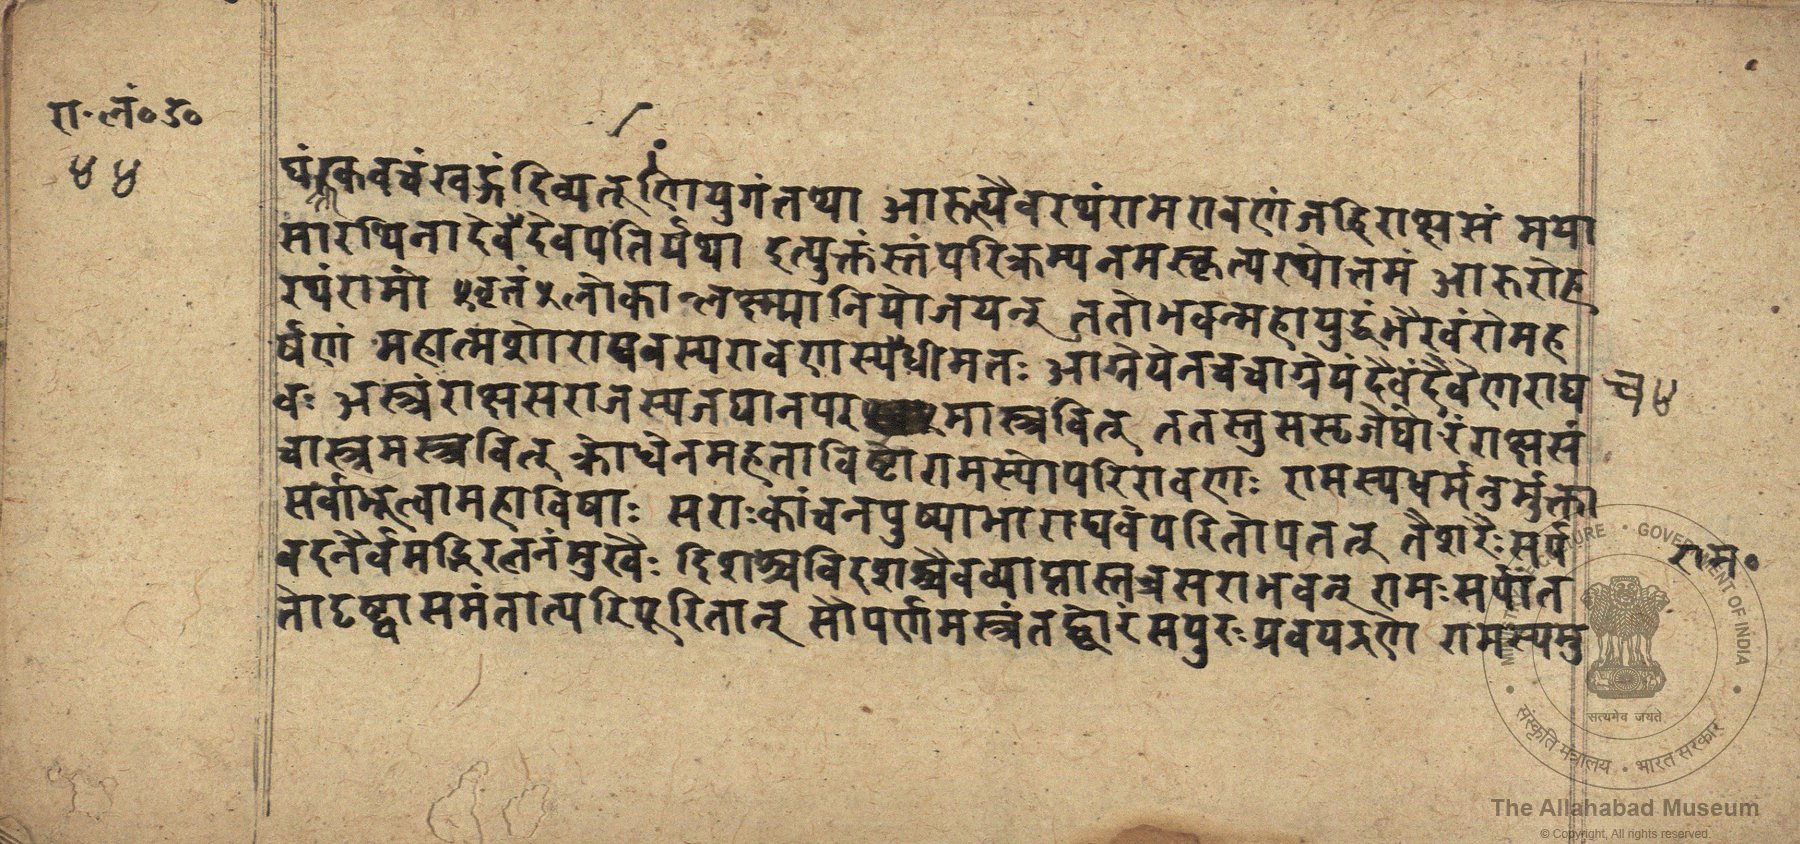 रा॰लं॰उ॰
४४
घंकवचंखड्गंदिव्यतूणीयुगंतथा आरुह्यैवरथंरामरावणंजहिराक्षसं मया
सारथिनादेवदेवपतिर्यथा इत्युक्तंस्तंपरिक्रम्यनमस्कृत्यरथोत्तमं आरुरोह
रथंरामो वृतंलोकान्लक्ष्म्यानियोजयन् ततोभवन्महायुद्धंभैरवंरोमह
र्षणं महात्मशोराघवस्यरावणस्यधीमतः आग्नेयेनचचाग्नेयंदैवंदैवेणराघ
च४
वः अस्त्रंराक्षसराजस्यजघानपरमास्त्रवित् ततस्तुससृजेघोरंराक्षसं
चास्त्रमस्त्रवित् क्रोधेनमहताविष्टोरामस्योपरिरावणः रामस्यधर्मनुर्मुक्ता
सर्वाभूत्वामहाविषाः सराःकांचनपुष्याभाराघवंपरितोपतत् तैशरैःसर्प
वदनैर्वमद्भिरत्ननंमुखैः दिशश्चविदशश्चैवव्याप्तास्तत्रसराभवन् रामःसर्पांत
राम॰
तोदृष्ट्वासमंतात्परिपूरितान् सौपर्णमस्त्रंतद्घोरंसपुरःप्रवपद्रणे रामस्यमु
MINISTRY OF CULTURE • GOVERNMENT OF INDIA
सत्यमेव जयते
संस्कृति मंत्रालय • भारत सरकार
The Allahabad Museum
© Copyright, All rights reserved.